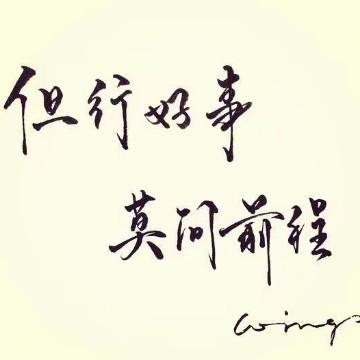 但行好事
莫问前程
wings